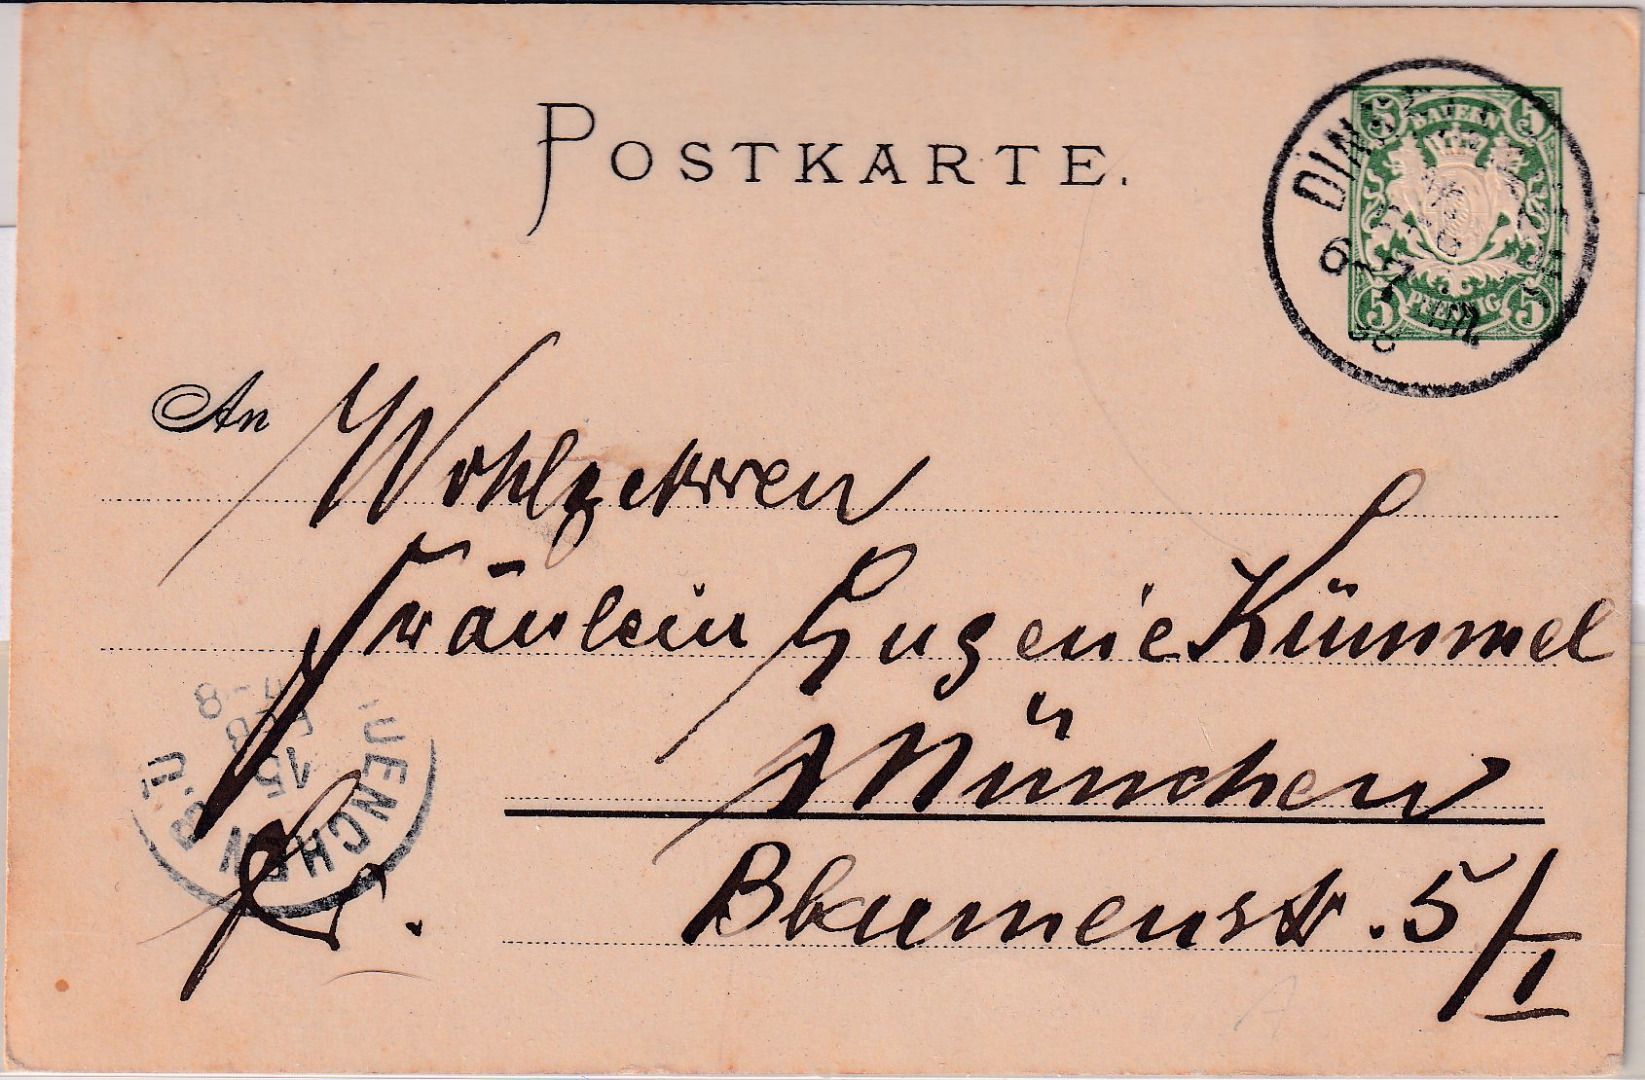 POSTKARTE.
5 BAYERN 5
5 PFENNIG 5
DIN
6
7
An Wohlgeboren
Fräulein Eugenie Kümmel
München
Blumenstr. 5/I
Fr.
MUENCHEN
15
FEB
7-8